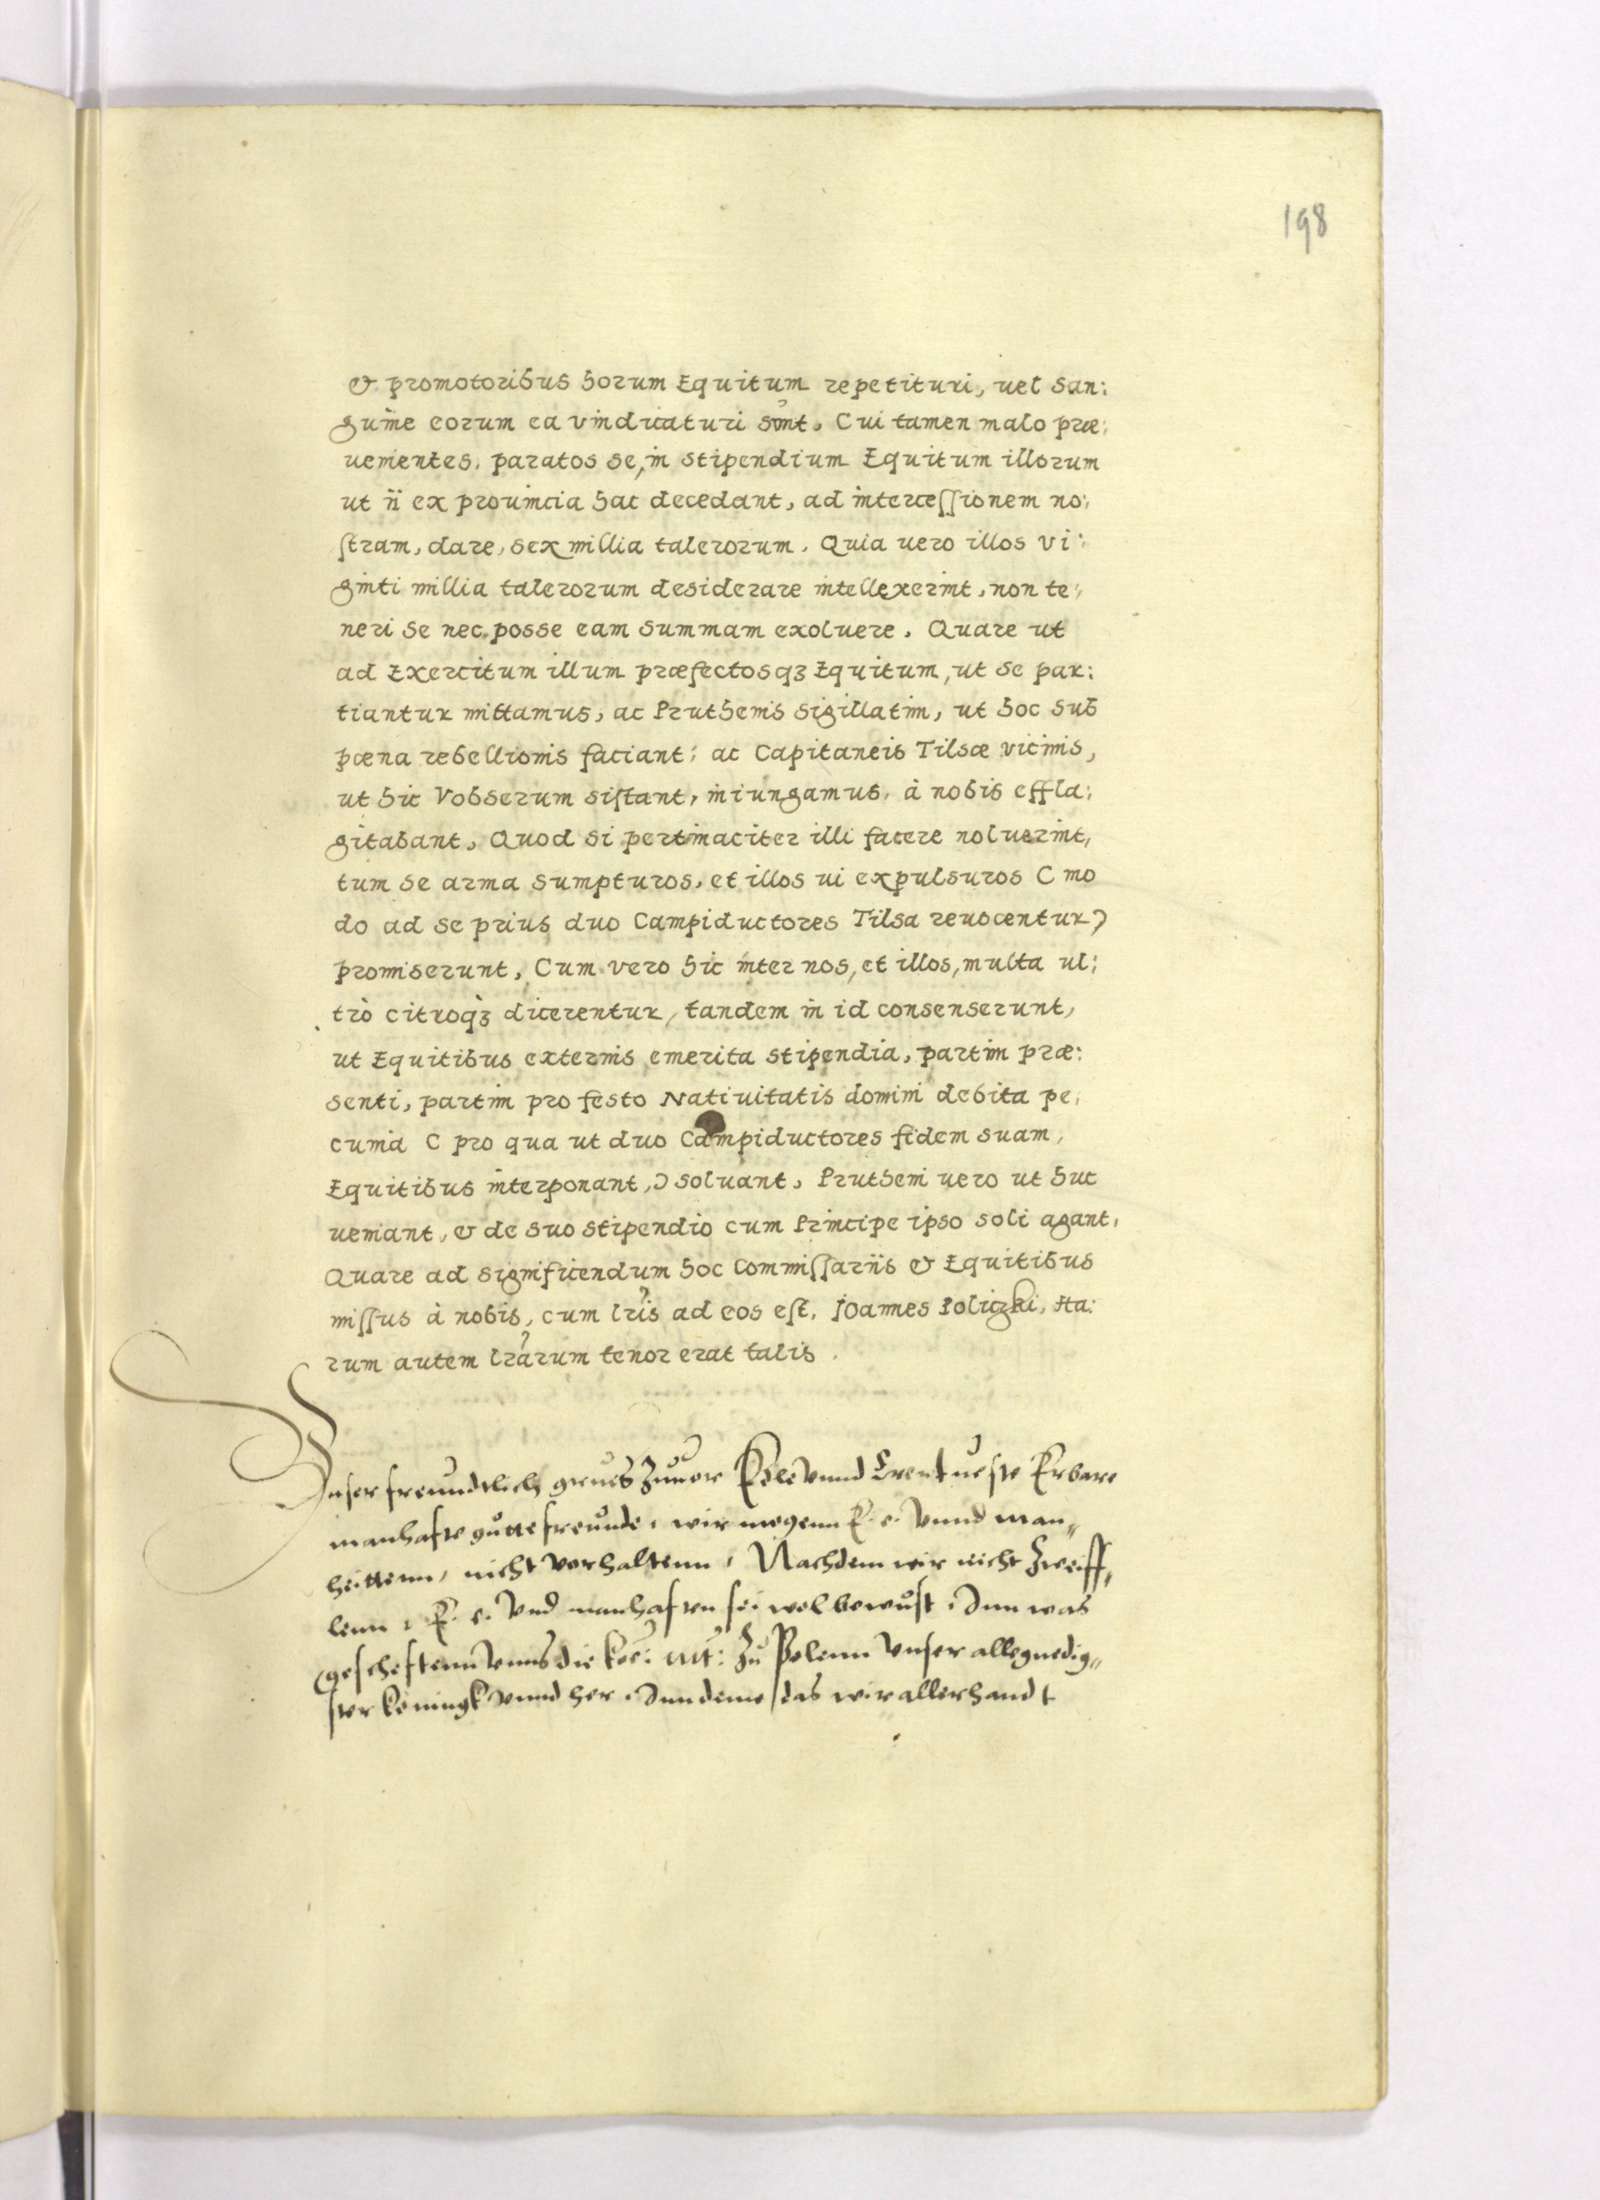 198
& promotoribus horum Equitum repetituri, uel san:
guine eorum ea vindicaturi sint. Cui tamen malo præ:
uenientes, paratos se, in stipendium Equitum illorum
ut ii ex prouincia hac decedant, ad intercessionem no:
stram, dare, sex millia talerorum. Quia uero illos vi:
ginti millia talerorum desiderare intellexerint, non te:
neri se nec posse eam summam exoluere. Quare ut
ad Exercitum illum præfectosqз Equitum, ut se par:
tiantur mittamus, ac Pruthenis sigillatim, ut hoc sub
pœna rebellionis faciant: ac Capitaneis Tilsæ vicinis,
ut hic Vobserum sistant, iniungamus, à nobis effla:
gitabant. Quod si pertinaciter illi facere noluerint,
tum se arma sumpturos, et illos ui expulsuros (mo
do ad se prius duo Campiductores Tilsa reuocentur)
promiserunt. Cum vero hic inter nos, et illos, multa ul:
trò citroqз̀ dicerentur, tandem in id consenserunt,
ut Equitibus externis emerita stipendia, partim præ:
senti, partim pro festo Natiuitatis domini debita pe:
cunia (pro qua ut duo Campiductores fidem suam,
Equitibus interponant,) soluant. Prutheni uero ut huc
ueniant, & de suo stipendio cum Principe ipso soli agant.
Quare ad significendum hoc Commissariis & Equitibus
missus à nobis, cum lris ad eos est. Joannes Policzki, Ha:
rum autem lrarum tenor erat talis.
Vnser freundtlich grues zuuor Edle vnnd Erentueste Erbare
manhafte gutte freunde, wir mogenn E. e. vnnd man„
heittenn, nicht vorhaltenn, Nachdem wir nicht zweiff„
lenn, E. e. vnd manhaften sei wol bewust, Inn was
gescheftenn vnns die koe: Mt: zu Polenn vnser allegnedig„
ster koningk vnnd her, Inn deme das wir allerhandt